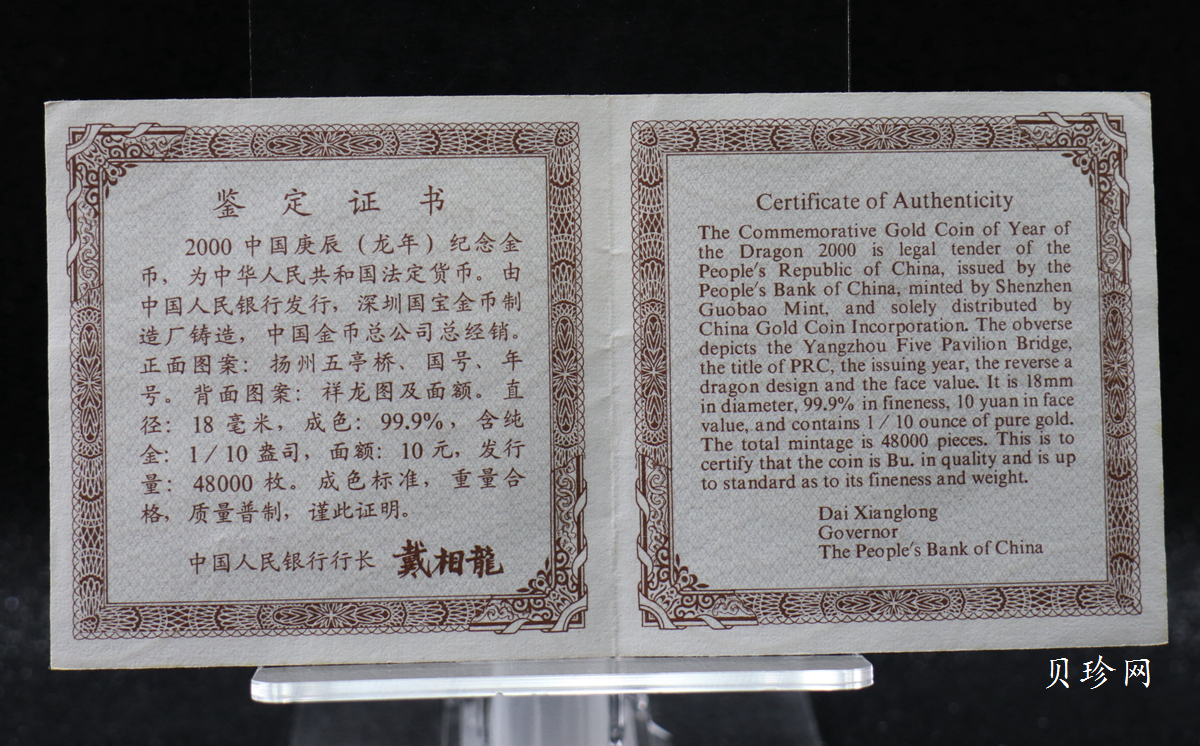 鉴定证书
2000中国庚辰(龙年)纪念金
币，为中华人民共和国法定货币。由
中国人民银行发行，深圳国宝金币制
造厂铸造，中国金币总公司总经销。
正面图案：扬州五亭桥、国号、年
号。背面图案：祥龙图及面额。直
径：18毫米，成色：99.9%，含纯
金：1/10盎司，面额：10元，发行
量：48000枚。成色标准，重量合
格，质量普制，谨此证明。
中国人民银行行长 戴相龍
Certificate of Authenticity
The Commemorative Gold Coin of Year of
the Dragon 2000 is legal tender of the
People's Republic of China, issued by the
People's Bank of China, minted by Shenzhen
Guobao Mint, and solely distributed by
China Gold Coin Incorporation. The obverse
depicts the Yangzhou Five Pavilion Bridge,
the title of PRC, the issuing year, the reverse a
dragon design and the face value. It is 18mm
in diameter, 99.9% in fineness, 10 yuan in face
value, and contains 1/10 ounce of pure gold.
The total mintage is 48000 pieces. This is to
certify that the coin is Bu. in quality and is up
to standard as to its fineness and weight.
Dai Xianglong
Governor
The People's Bank of China
贝珍网